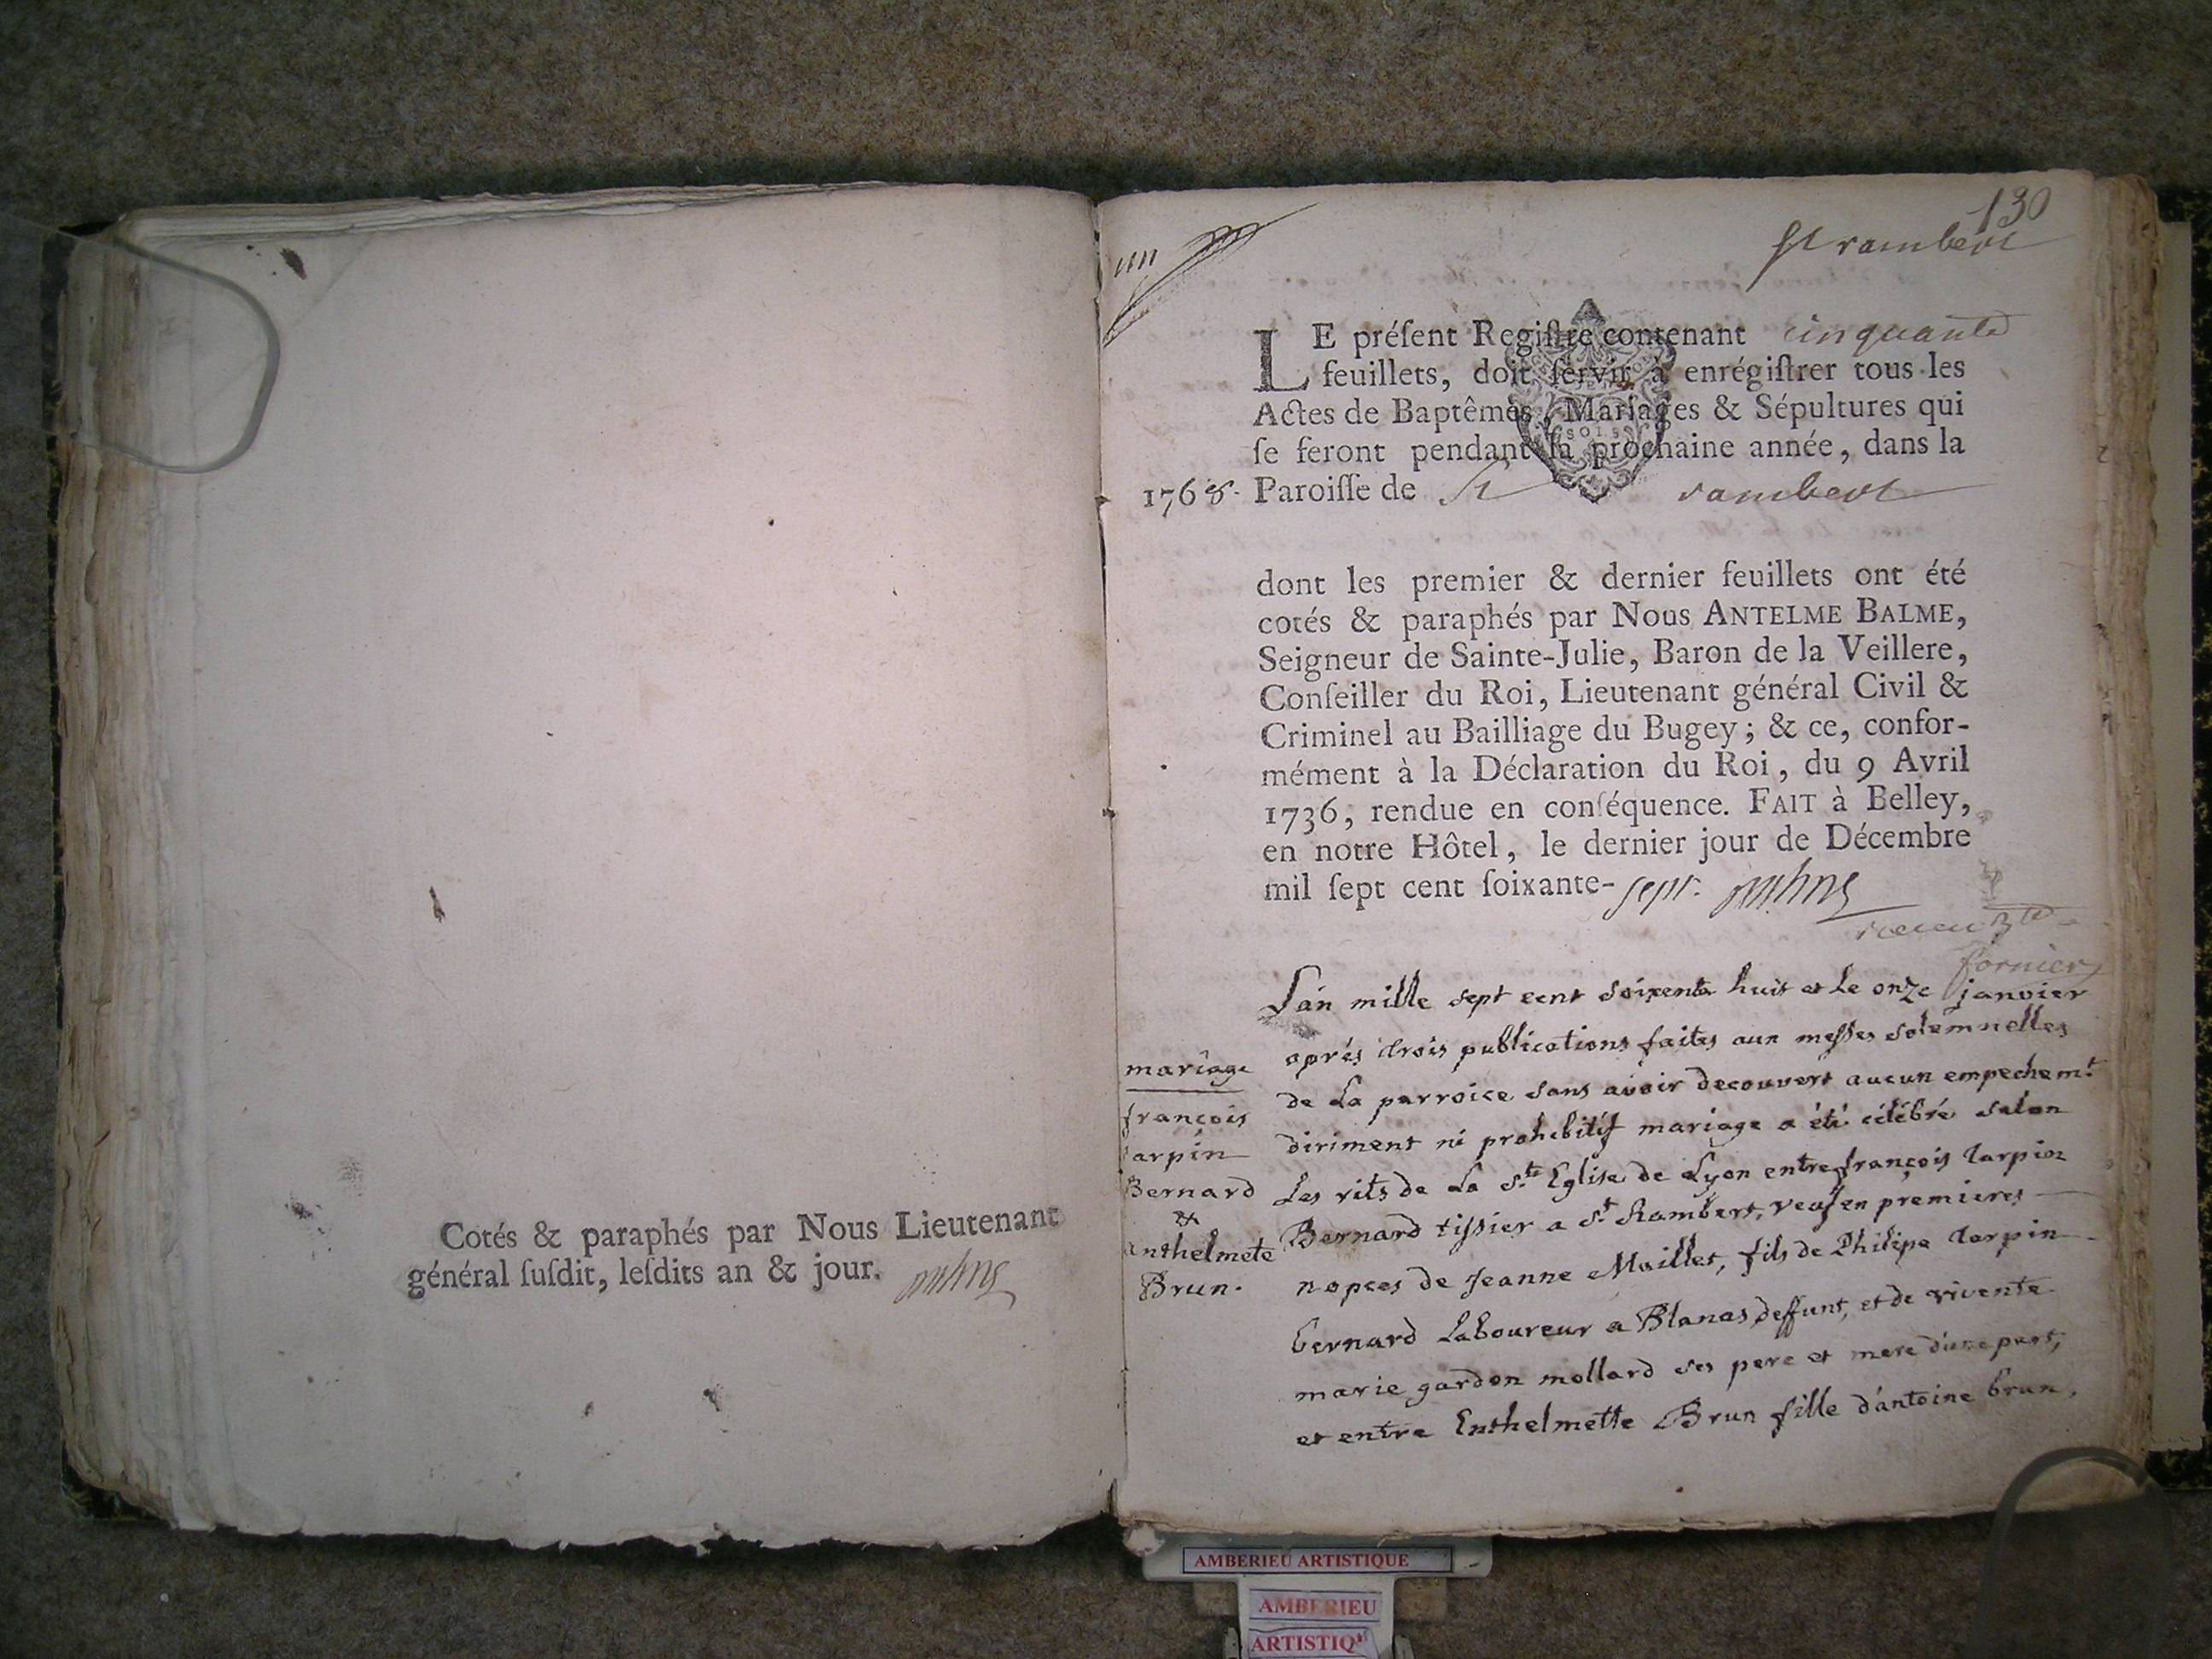 Cotés & paraphés par Nous Lieutenant
général ſuſdit, leſdits an & jour.
130
St rambert
LE préſent Regiſtre contenant cinquante
feuillets, doit ſervir à enrégiſtrer tous les
Actes de Baptêmes, Mariages & Sépultures qui
ſe feront pendant la prochaine année, dans la
1768. Paroiſſe de St rambert
dont les premier & dernier feuillets ont été
cotés & paraphés par Nous ANTELME BALME,
Seigneur de Sainte-Julie, Baron de la Veillere,
Conſeiller du Roi, Lieutenant général Civil &
Criminel au Bailliage du Bugey; & ce, confor-
mément à la Déclaration du Roi, du 9 Avril
1736, rendue en conſéquence. FAIT à Belley,
en notre Hôtel, le dernier jour de Décembre
mil ſept cent ſoixante-sept.
fornier
mariage
françois
tarpin
Bernard
&
anthelmete
Brun.
L'an mille sept cent soixente huit et Le onze janvier
aprés trois publications faites aux messes solemnelles
de La parroice sans avoir decouvert aucun empechemt
diriment ni prohibitif mariage a été célébré selon
Les rits de La Ste Eglise de Lyon entre françois tarpin
Bernard tissier a St Rambert, veuf en premieres
nopces de Jeanne Maillet, fils de Philipe tarpin
bernard Laboureur a Blanas deffunt, et de vivente
marie gardon mollard ses pere et mere d'une part,
et entre Enthelmette Brun fille d'antoine brun,
AMBERIEU ARTISTIQUE
AMBERIEU
ARTISTIQ